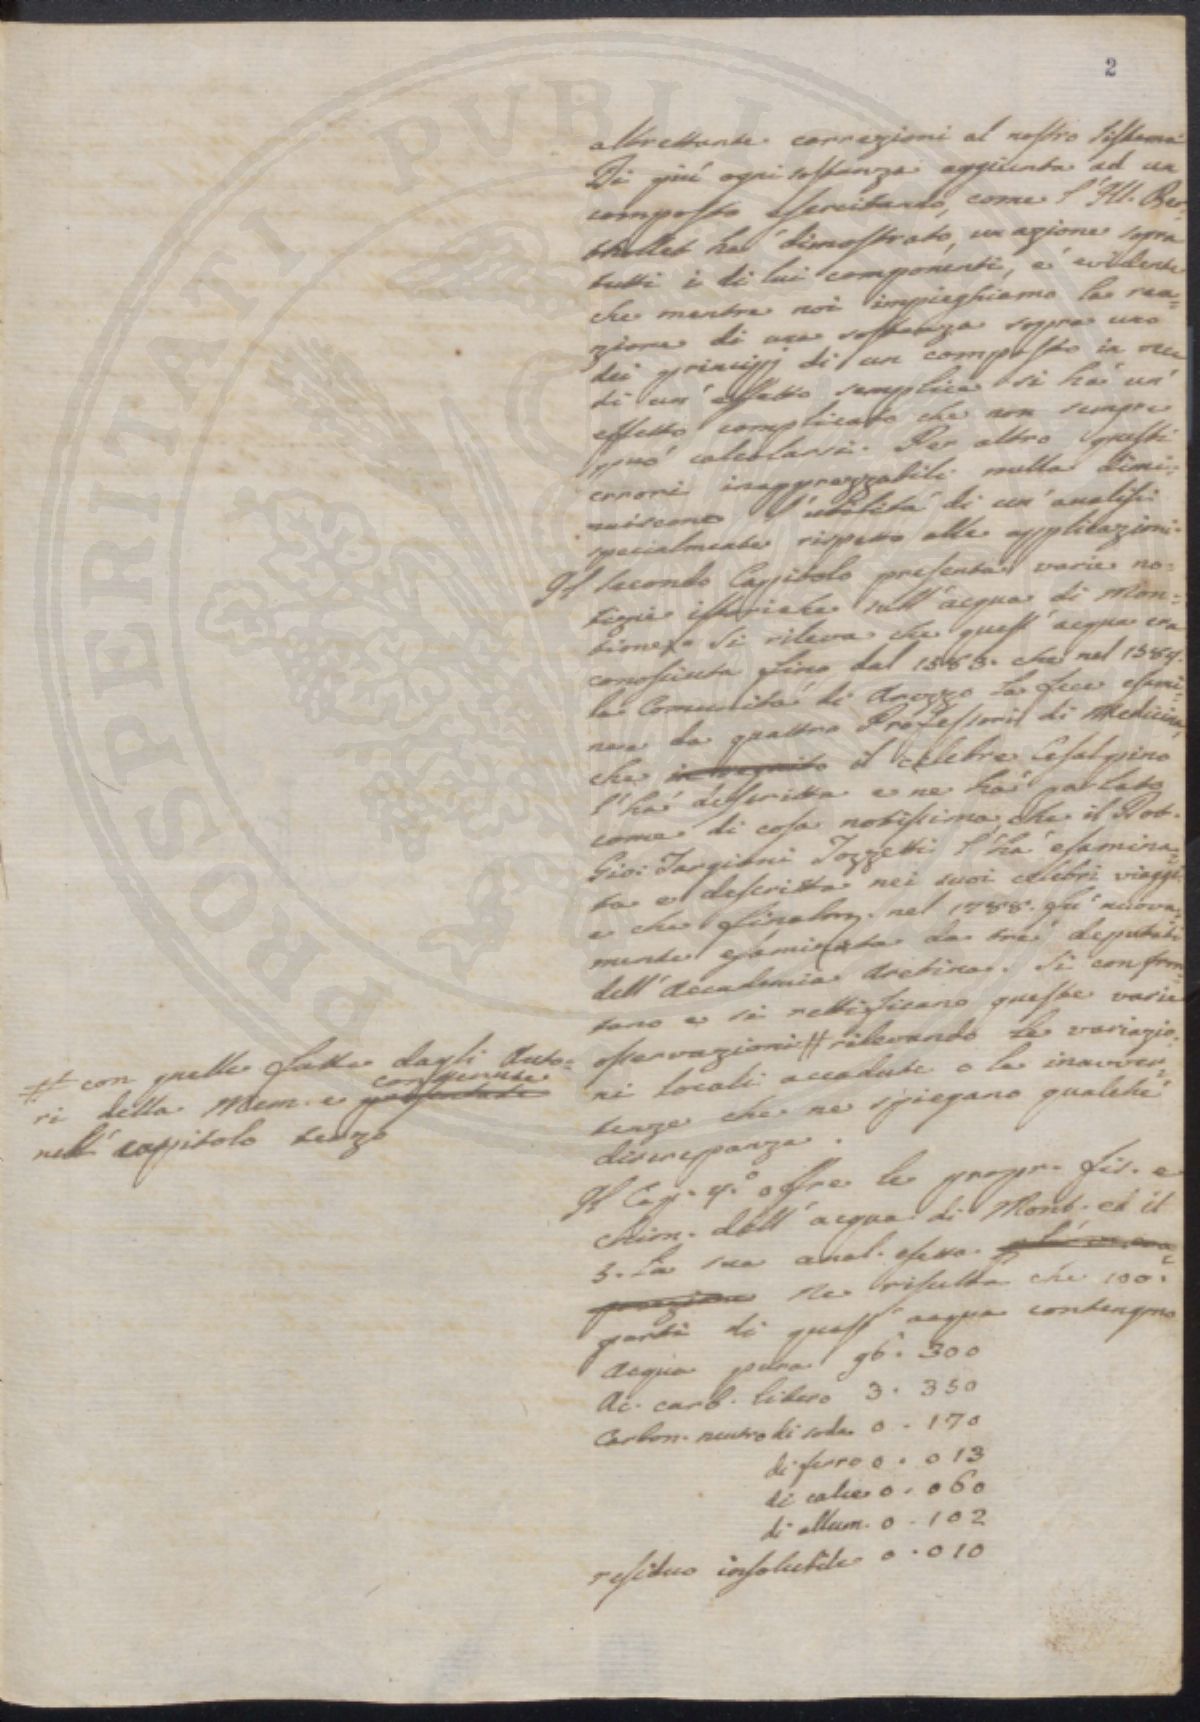 2
altrettante correzioni al nostro sistema
Di più ogni sostanza aggiunta ad un
composto esercitando, come l'Ill. Ber-
thollet ha dimostrato, un azione sopra
tutti i di lui componenti, e' evidente
che mentre noi impieghiamo la rea-
zione di una sostanza sopra uno
dei principj di un composto in vece
di un' effetto semplice si ha' un'
effetto complicato che non sempre
può calcolarsi. Per altro questi
errori inapprezzabili nulla dimi-
nuiscono l'utilità di un' analisi
specialmente rispetto alle applicazioni.
Il secondo Capitolo presenta varie no-
tizie istoriche sull'acqua di Mon-
tione. Si rileva che quest' acqua era
conosciuta fino dal 1583. che nel 1584.
la Comunità di Arezzo la fece esami-
nare da quattro Professori di Medicina,
che il celebre Cesalpino
l'ha' descritta e ne ha' parlato
come di cosa notissima, che il Dot.
Gio: Targioni Tozzetti l'ha' esamina-
ta e descritta nei suoi celebri viaggi
e che finalm. nel 1788. fu' nuova-
mente esaminata da tre' deputati
dell'Accademia Aretina. Si confron-
tano e si rettificano queste varie
osservazioni # rilevando le variazio-
ni locali accadute o le inavver-
tenze che ne spiegano qualche'
discrepanza.
# con quelle fatte dagli Auto-
ri della Mem. e contenute presentate
nell' capitolo terzo
Il Cap. 4.º offre le propr. fis. e
chim. dell' acqua di Mont. ed il
5. la sua anal. esatta.
Ne risulta che 100.
parti di quest' acqua contengono
Acqua pura 96. 300
Ac. carb. libero 3. 350
Carbon. neutro di soda 0. 170
di ferro 0. 013
di calce 0. 060
di allum. 0. 102
residuo insolubile 0. 010
PROSPERITATI PUBLI